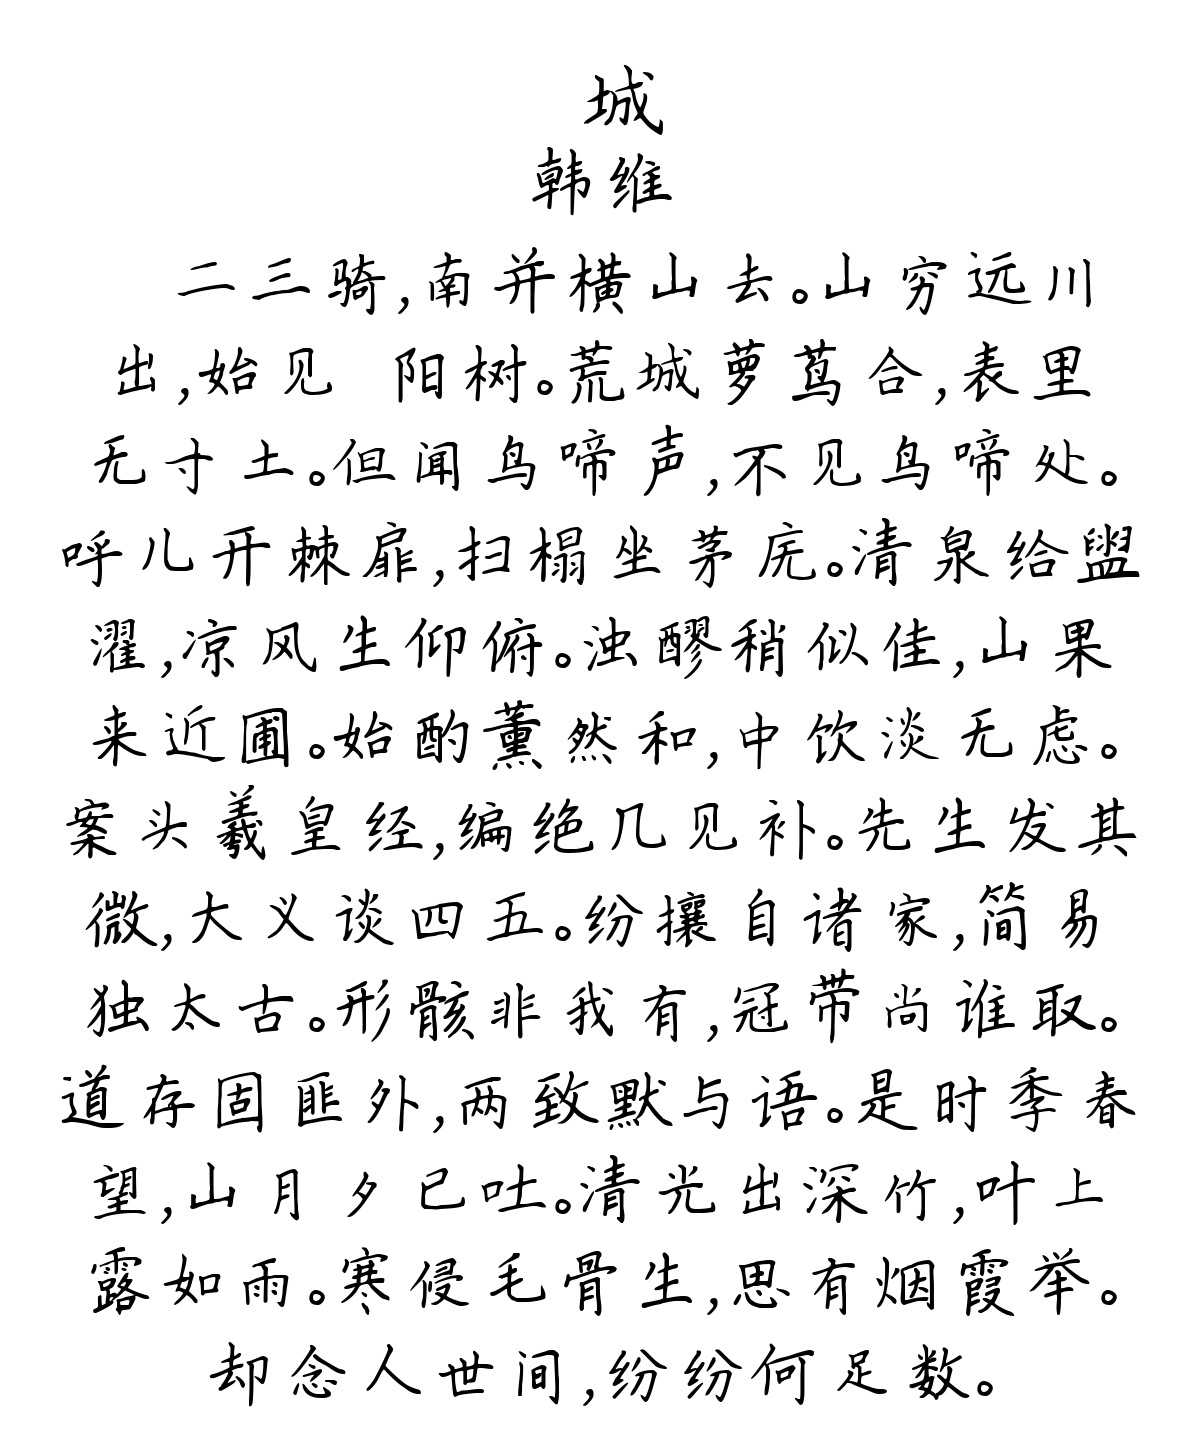 城
韩维
二三骑,南并横山去。山穷远川
出,始见 阳树。荒城萝茑合,表里
无寸土。但闻鸟啼声,不见鸟啼处。
呼儿开棘扉,扫榻坐茅庑。清泉给盥
濯,凉风生仰俯。浊醪稍似佳,山果
来近圃。始酌薰然和,中饮淡无虑。
案头羲皇经,编绝几见补。先生发其
微,大义谈四五。纷攘自诸家,简易
独太古。形骸非我有,冠带尚谁取。
道存固匪外,两致默与语。是时季春
望,山月夕已吐。清光出深竹,叶上
露如雨。寒侵毛骨生,思有烟霞举。
却念人世间,纷纷何足数。